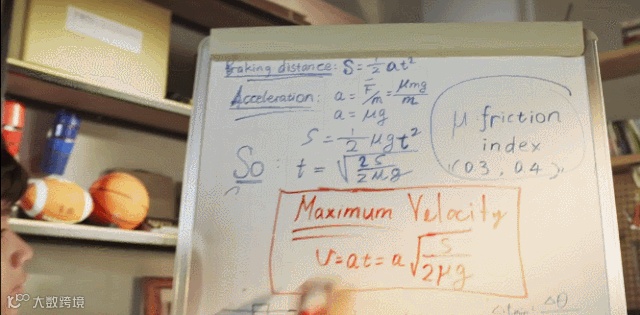 Braking distance: S=½at²
Acceleration: a = F/m = μmg/m
a = μg
S = ½μgt²
So: t = √(2S/2μg)
μ friction
index
(0.3, 0.4)
Maximum Velocity
V=at=a√(S/2μg)
Δθ
大数跨境